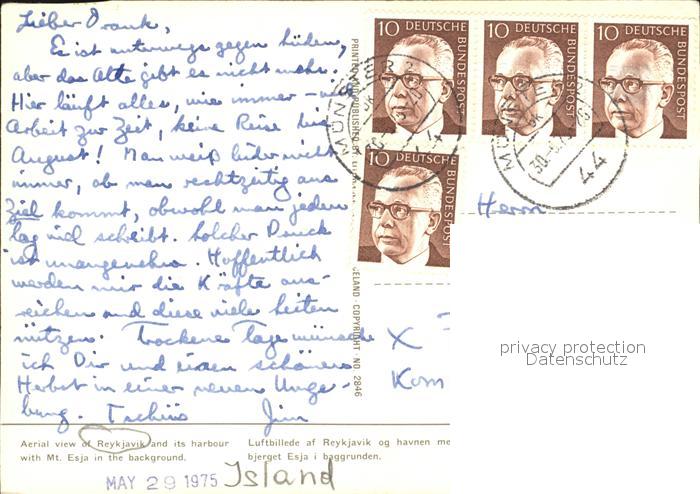 Lieber Frank,
Es ist unterwegs gegen Süden,
aber das Alte gibt es nicht mehr.
Hier läuft alles, wie immer – viel
Arbeit zur Zeit, keine Reise bis
August! Man weiß leider nicht
immer, ob man rechtzeitig ans
Ziel kommt, obwohl man jeden
Tag viel schreibt. Solcher Druck
ist unangenehm. Hoffentlich
werden mir die Kräfte aus-
reichen und diese viele Seiten
nützen. Trockene Tage wünsche
ich Dir und einen schönen
Herbst in einer neuen Umge-
bung. Tschüs Jim
10 DEUTSCHE BUNDESPOST
10 DEUTSCHE BUNDESPOST
10 DEUTSCHE BUNDESPOST
10 DEUTSCHE BUNDESPOST
MÜNSTER
44
PRINTED AND PUBLISHED BY
ICELAND - COPYRIGHT NO. 2846
Herrn
X
Kom
privacy protection
Datenschutz
Aerial view of Reykjavik and its harbour
with Mt. Esja in the background.
Luftbillede af Reykjavik og havnen me
bjerget Esja i baggrunden.
MAY 29 1975 Island